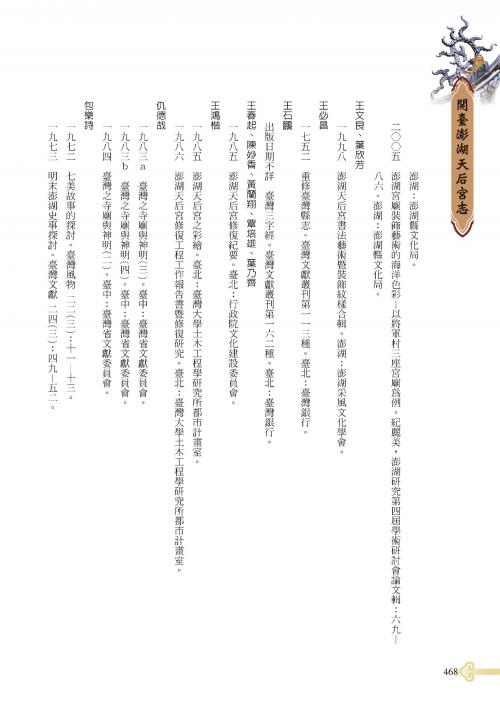 開臺澎湖天后宮志
澎湖：澎湖縣文化局。
二〇〇五　澎湖宮廟裝飾藝術的海洋色彩—以將軍村三座宮廟為例。紀麗美，澎湖研究第四屆學術研討會論文輯：六九—
八六。澎湖：澎湖縣文化局。
王文良、葉欣芳
一九九八　澎湖天后宮書法藝術暨裝飾紋樣合輯。澎湖：澎湖采風文化學會。
王必昌
一七五二　重修臺灣縣志。臺灣文獻叢刊第一一三種。臺北：臺灣銀行。
王石鵬
出版日期不詳　臺灣三字經。臺灣文獻叢刊第一六二種。臺北：臺灣銀行。
王春起、陳妙香、黃蘭翔、覃培雄、葉乃齊
一九八五　澎湖天后宮修復紀要。臺北：行政院文化建設委員會。
王鴻楷
一九八五　澎湖天后宮之彩繪。臺北：臺灣大學土木工程學研究所都市計畫室。
一九八六　澎湖天后宮修復工程工作報告書暨修復研究。臺北：臺灣大學土木工程學研究所都市計畫室。
仇德哉
一九八三a　臺灣之寺廟與神明（三）。臺中：臺灣省文獻委員會。
一九八三b　臺灣之寺廟與神明（四）。臺中：臺灣省文獻委員會。
一九八四　臺灣之寺廟與神明（二）。臺中：臺灣省文獻委員會。
包樂詩
一九七二　七美故事的探討。臺灣風物　二二（三）：十一—十三。
一九七三　明末澎湖史事探討。臺灣文獻　二四（三）：四九—五二。
468